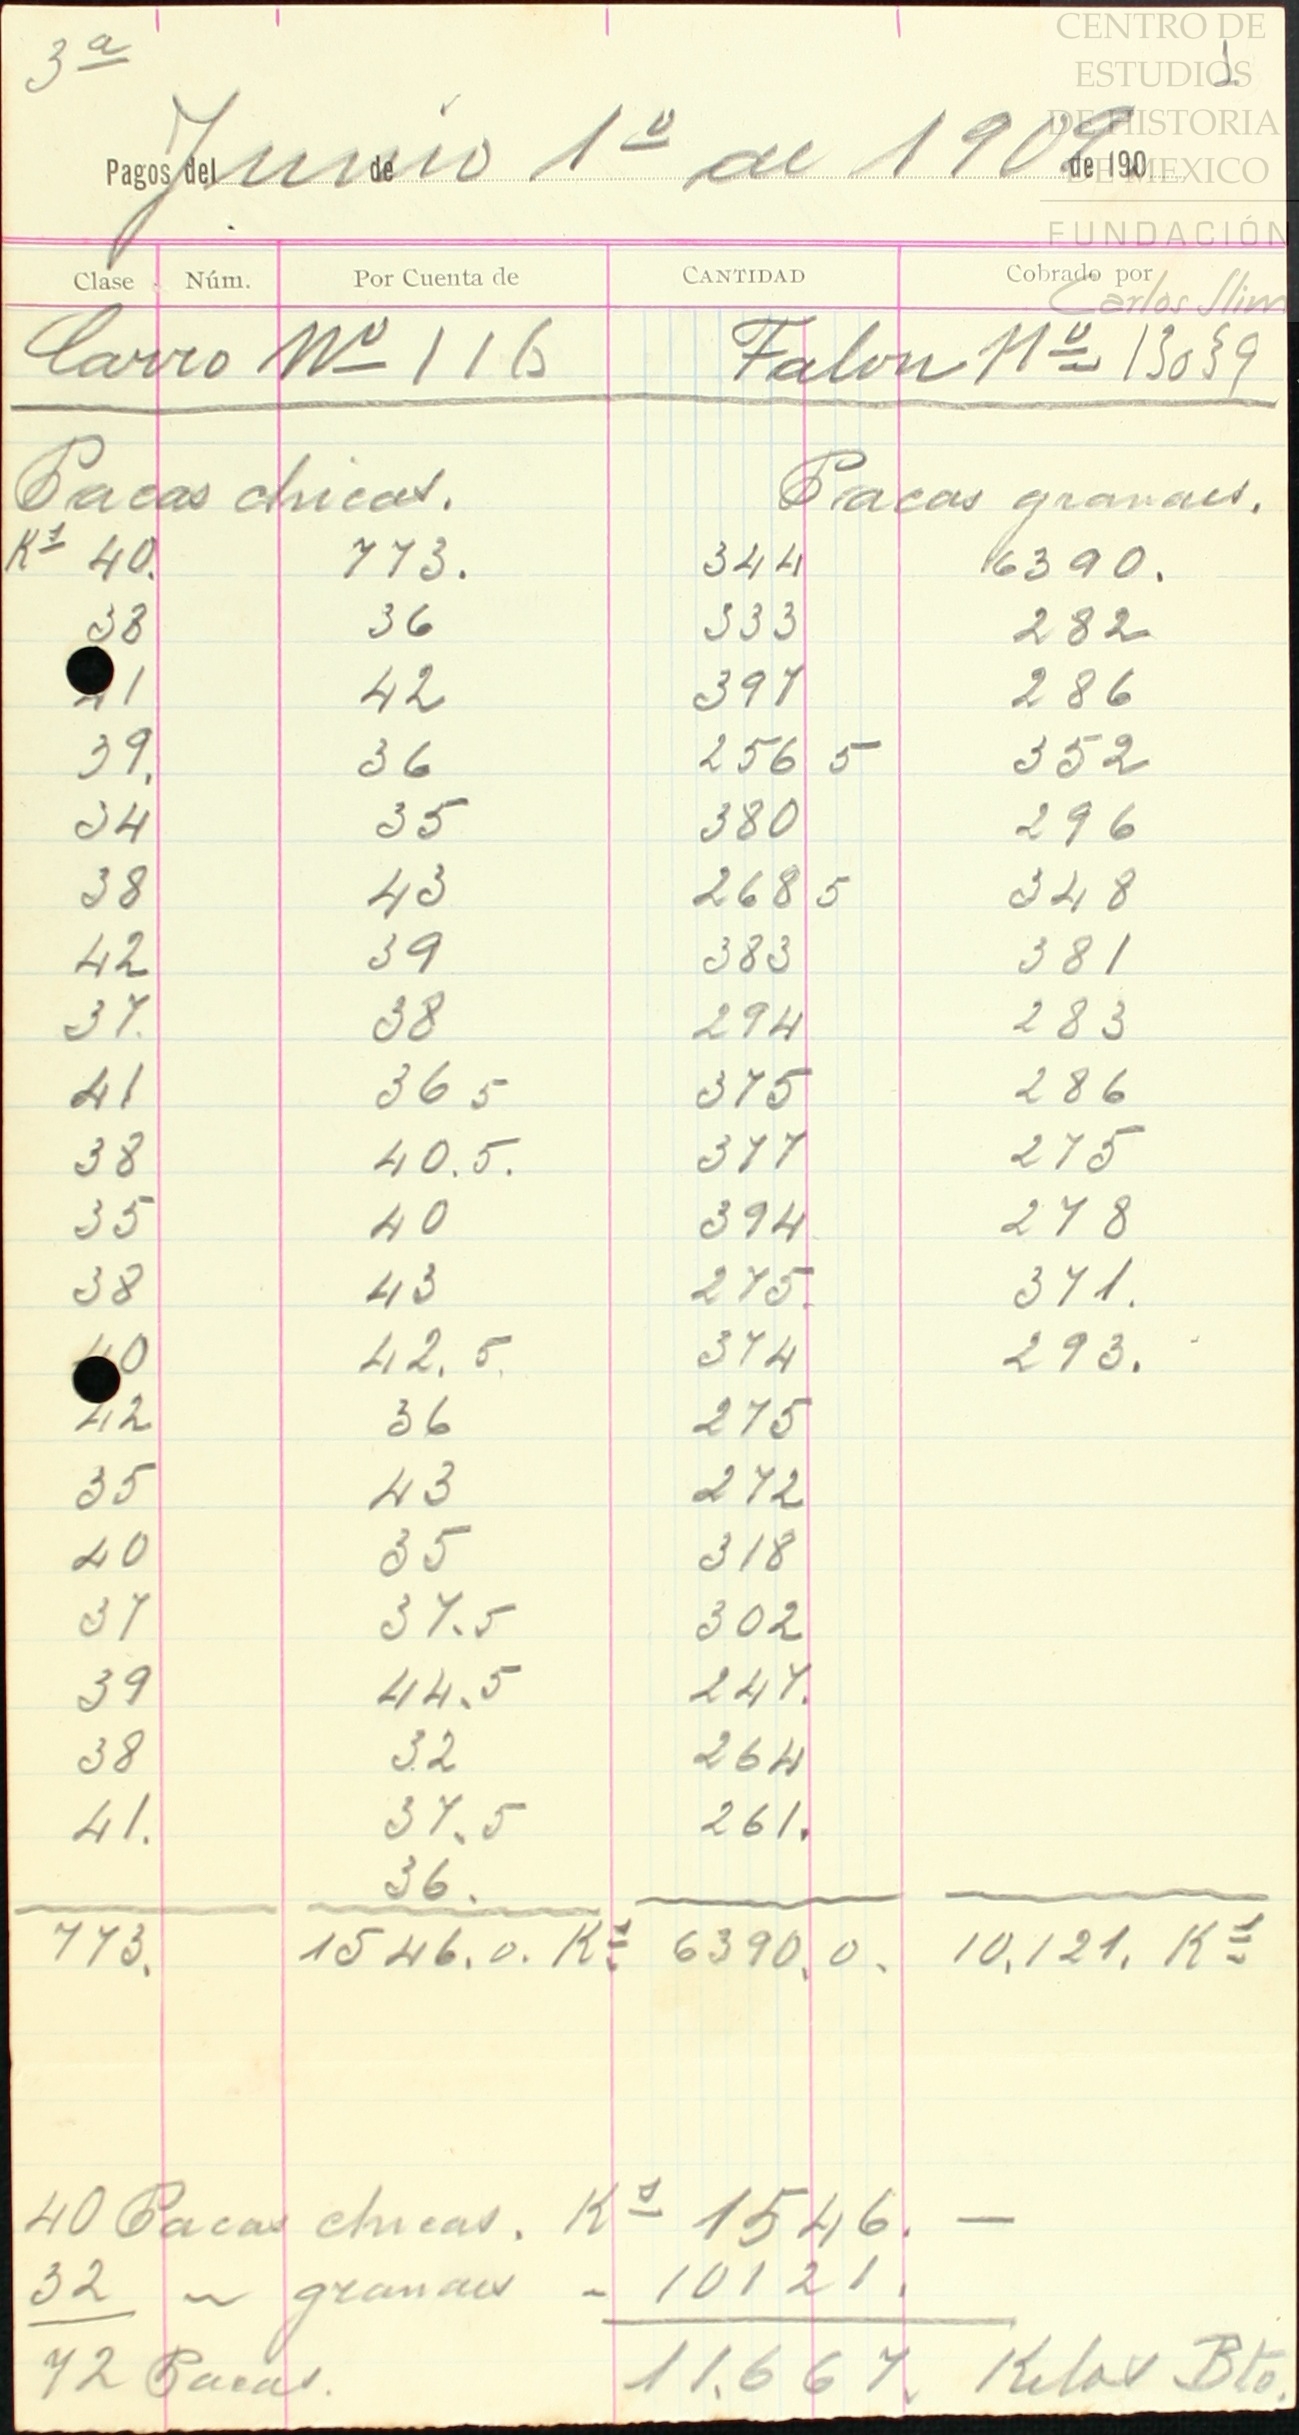 3ª
1
CENTRO DE
ESTUDIOS
DE HISTORIA
DE MEXICO
FUNDACIÓN
Carlos Slim
Pagos del de de 190
Junio 1º de 1909
Clase Núm. Por Cuenta de CANTIDAD Cobrado por
Carro Nº 116 Talon Nº 13039
Pacas chicas. Pacas grandes.
Kˢ 40. 773. 344 6390.
38 36 333 282
41 42 397 286
39. 36 256 5 352
34 35 380 296
38 43 268 5 348
42 39 383 381
37. 38 294 283
41 36 5 375 286
38 40.5. 377 275
35 40 394 278
38 43 275. 371.
40 42.5. 374 293.
42 36 275
35 43 272
40 35 318
37 37.5 302
39 44.5 247.
38 32 264
41. 37.5 261.
36.
773. 1546.0. Kˢ 6390.0. 10,121. Kˢ
40 Pacas chicas. Kˢ 1546. —
32 ~ grandes - 10121.
72 Pacas. 11.667. Kilos Bto.